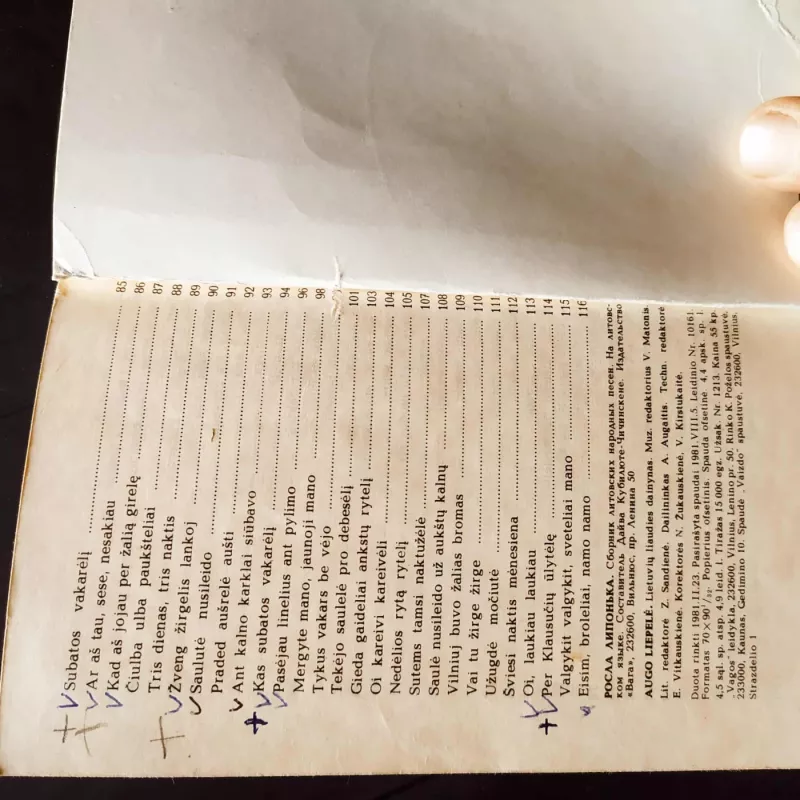 Subatos vakarėlį 85
Ar aš tau, sese, nesakiau 86
Kad aš jojau per žalią girelę 87
Čiulba ulba paukšteliai 88
Tris dienas, tris naktis 89
Žveng žirgelis lankoj 90
Saulutė nusileido 91
Praded aušrelė aušti 92
Ant kalno karklai siūbavo 93
Kas subatos vakarėlį 94
Pasėjau linelius ant pylimo 96
Mergyte mano, jaunoji mano 98
Tykus vakars be vėjo
Tekėjo saulelė pro debesėlį 101
Gieda gaideliai ankstų rytelį 103
Oi kareivi kareivėli 104
Nedėlios rytą rytelį 105
Sutems tamsi naktužėlė 107
Saulė nusileido už aukštų kalnų 108
Vilniuj buvo žalias bromas 109
Vai tu žirge žirge 110
Užugdė močiutė 111
Šviesi naktis mėnesiena 112
Oi, laukiau laukiau 113
Per Klausučių ūlytėlę 114
Valgykit valgykit, sveteliai mano 115
Eisim, broleliai, namo namo 116
РОСЛА ЛИПОНЬКА. Сборник литовских народных песен. На литовс-
ком языке. Составитель Дайва Кубилюте-Чичинскене. Издательство
«Вага», 232600, Вильнюс, пр. Ленина 50
AUGO LIEPELĖ. Lietuvių liaudies dainynas. Muz. redaktorius V. Matonis.
Lit. redaktorė Z. Sandienė. Dailininkas A. Augaitis. Techn. redaktorė
E. Vitkauskienė. Korektorės N. Žukauskienė, V. Kirstukaitė.
Duota rinkti 1981.II.23. Pasirašyta spaudai 1981.VIII.5. Leidinio Nr. 10161.
Formatas 70×90¹/₃₂. Popierius ofsetinis. Spauda ofsetinė. 4,4 apsk. sp. l.
4,5 sąl. sp. atsp. 4,9 leid. l. Tiražas 15 000 egz. Užsak. Nr. 1213. Kaina 55 kp.
„Vagos“ leidykla, 232600, Vilnius, Lenino pr. 50. Rinko K. Poželos spaustuvė,
233000, Kaunas, Gedimino 10. Spaudė „Vaizdo“ spaustuvė, 232600, Vilnius,
Strazdelio 1